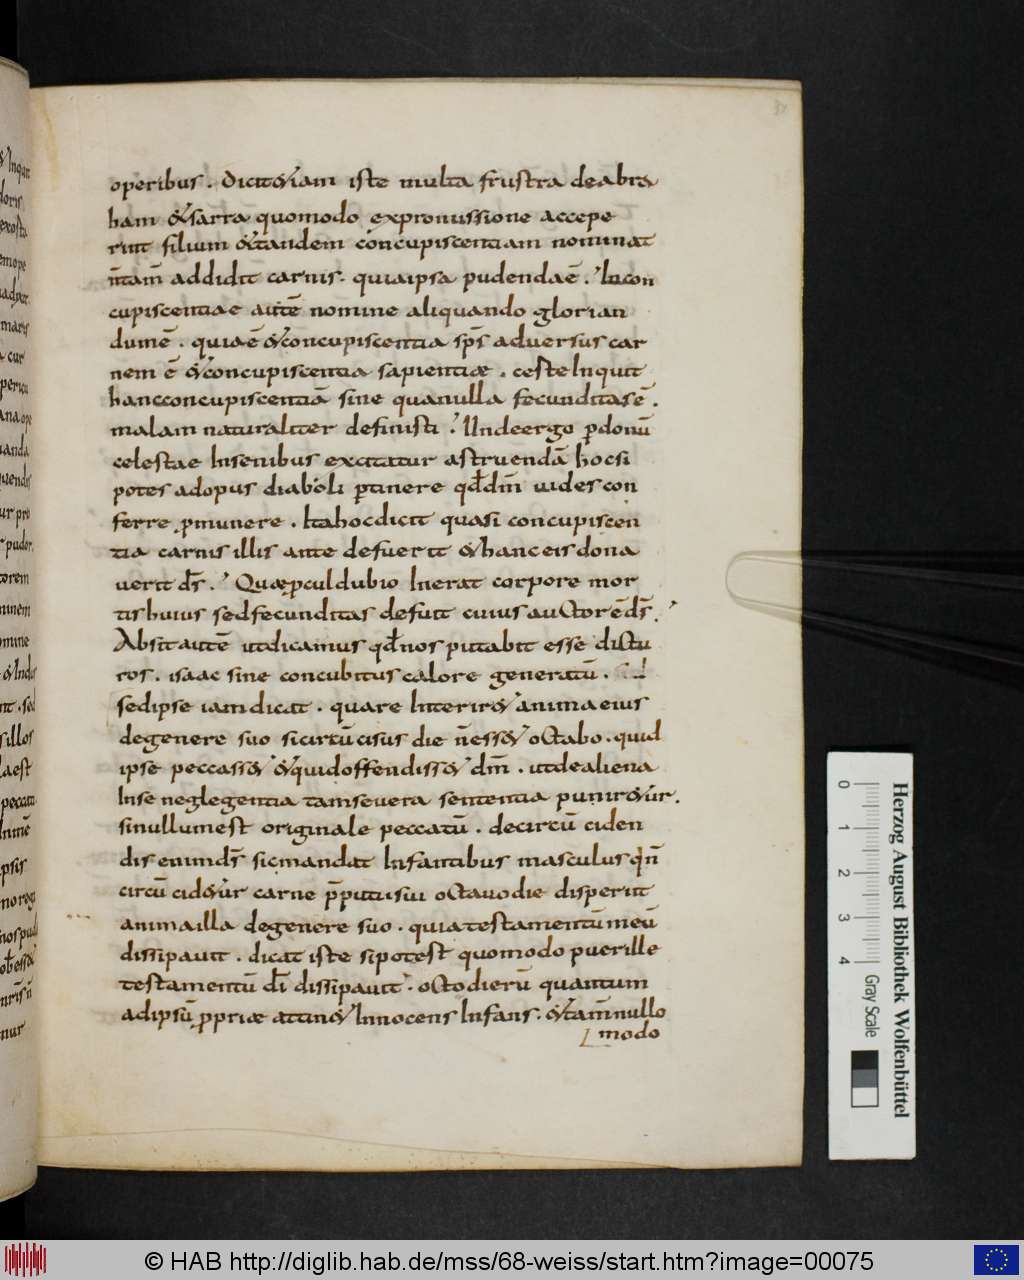 operibus . dicit & iam iste multa frustra deabra
ham & sarra quomodo expromissione accepe
rint filium & tandem concupiscentiam nominat
n̄tam̄ addidit carnis . quia ipsa pudenda ē . In con
cupiscentiae autē nomine aliquando glorian
dum ē . quia ē & concupiscentia sp̄s adversus car
nem ē & concupiscentia sapientiæ . ceste Inquit
hanc concupiscentiā sine qua nulla fecunditas ē .
malam naturaliter definisti ? Unde ergo p donū
celestae Insenibus excitatur astruendā hoc si
potes adopus diaboli ptinere qđ dm̄ vides con
ferre pmunere . Ita hoc dicit quasi concupiscen
tia carnis illis ante defuerit & hanc eis dona
verit ds̄ . Quæ pcul dubio Inerat corpore mor
tis huius sed fecunditas defuit cuius auctor ē ds̄ .
Absit autē ut dicamus qđ nos putabit esse dictu
ros . isaac sine concubitus calore generatū .
sed ipse iam dicat . quare Interir& anima eius
degenere suo si circū cisus die n̄ ess& octabo . quid
ipse peccass& & quid offendiss& dm̄ . ut de aliena
Inse neglegentia tam severa sententia punir&ur .
si nullum est originale peccatū . de circū ciden
dis enim ds̄ sic mandat Infantibus masculus qn̄
circū cid&ur carne p̄putii sui octavo die disperit
anima illa de genere suo . quia testamentū meū
dissipavit . dicat iste si potest quomodo puer ille
testamentū dī dissipavit . octo dierū quantum
adipsū ppriæ attin& Innocens Infans . & tam̄ nullo
modo
Herzog August Bibliothek Wolfenbüttel
0 1 2 3 4 Gray Scale
© HAB http://diglib.hab.de/mss/68-weiss/start.htm?image=00075